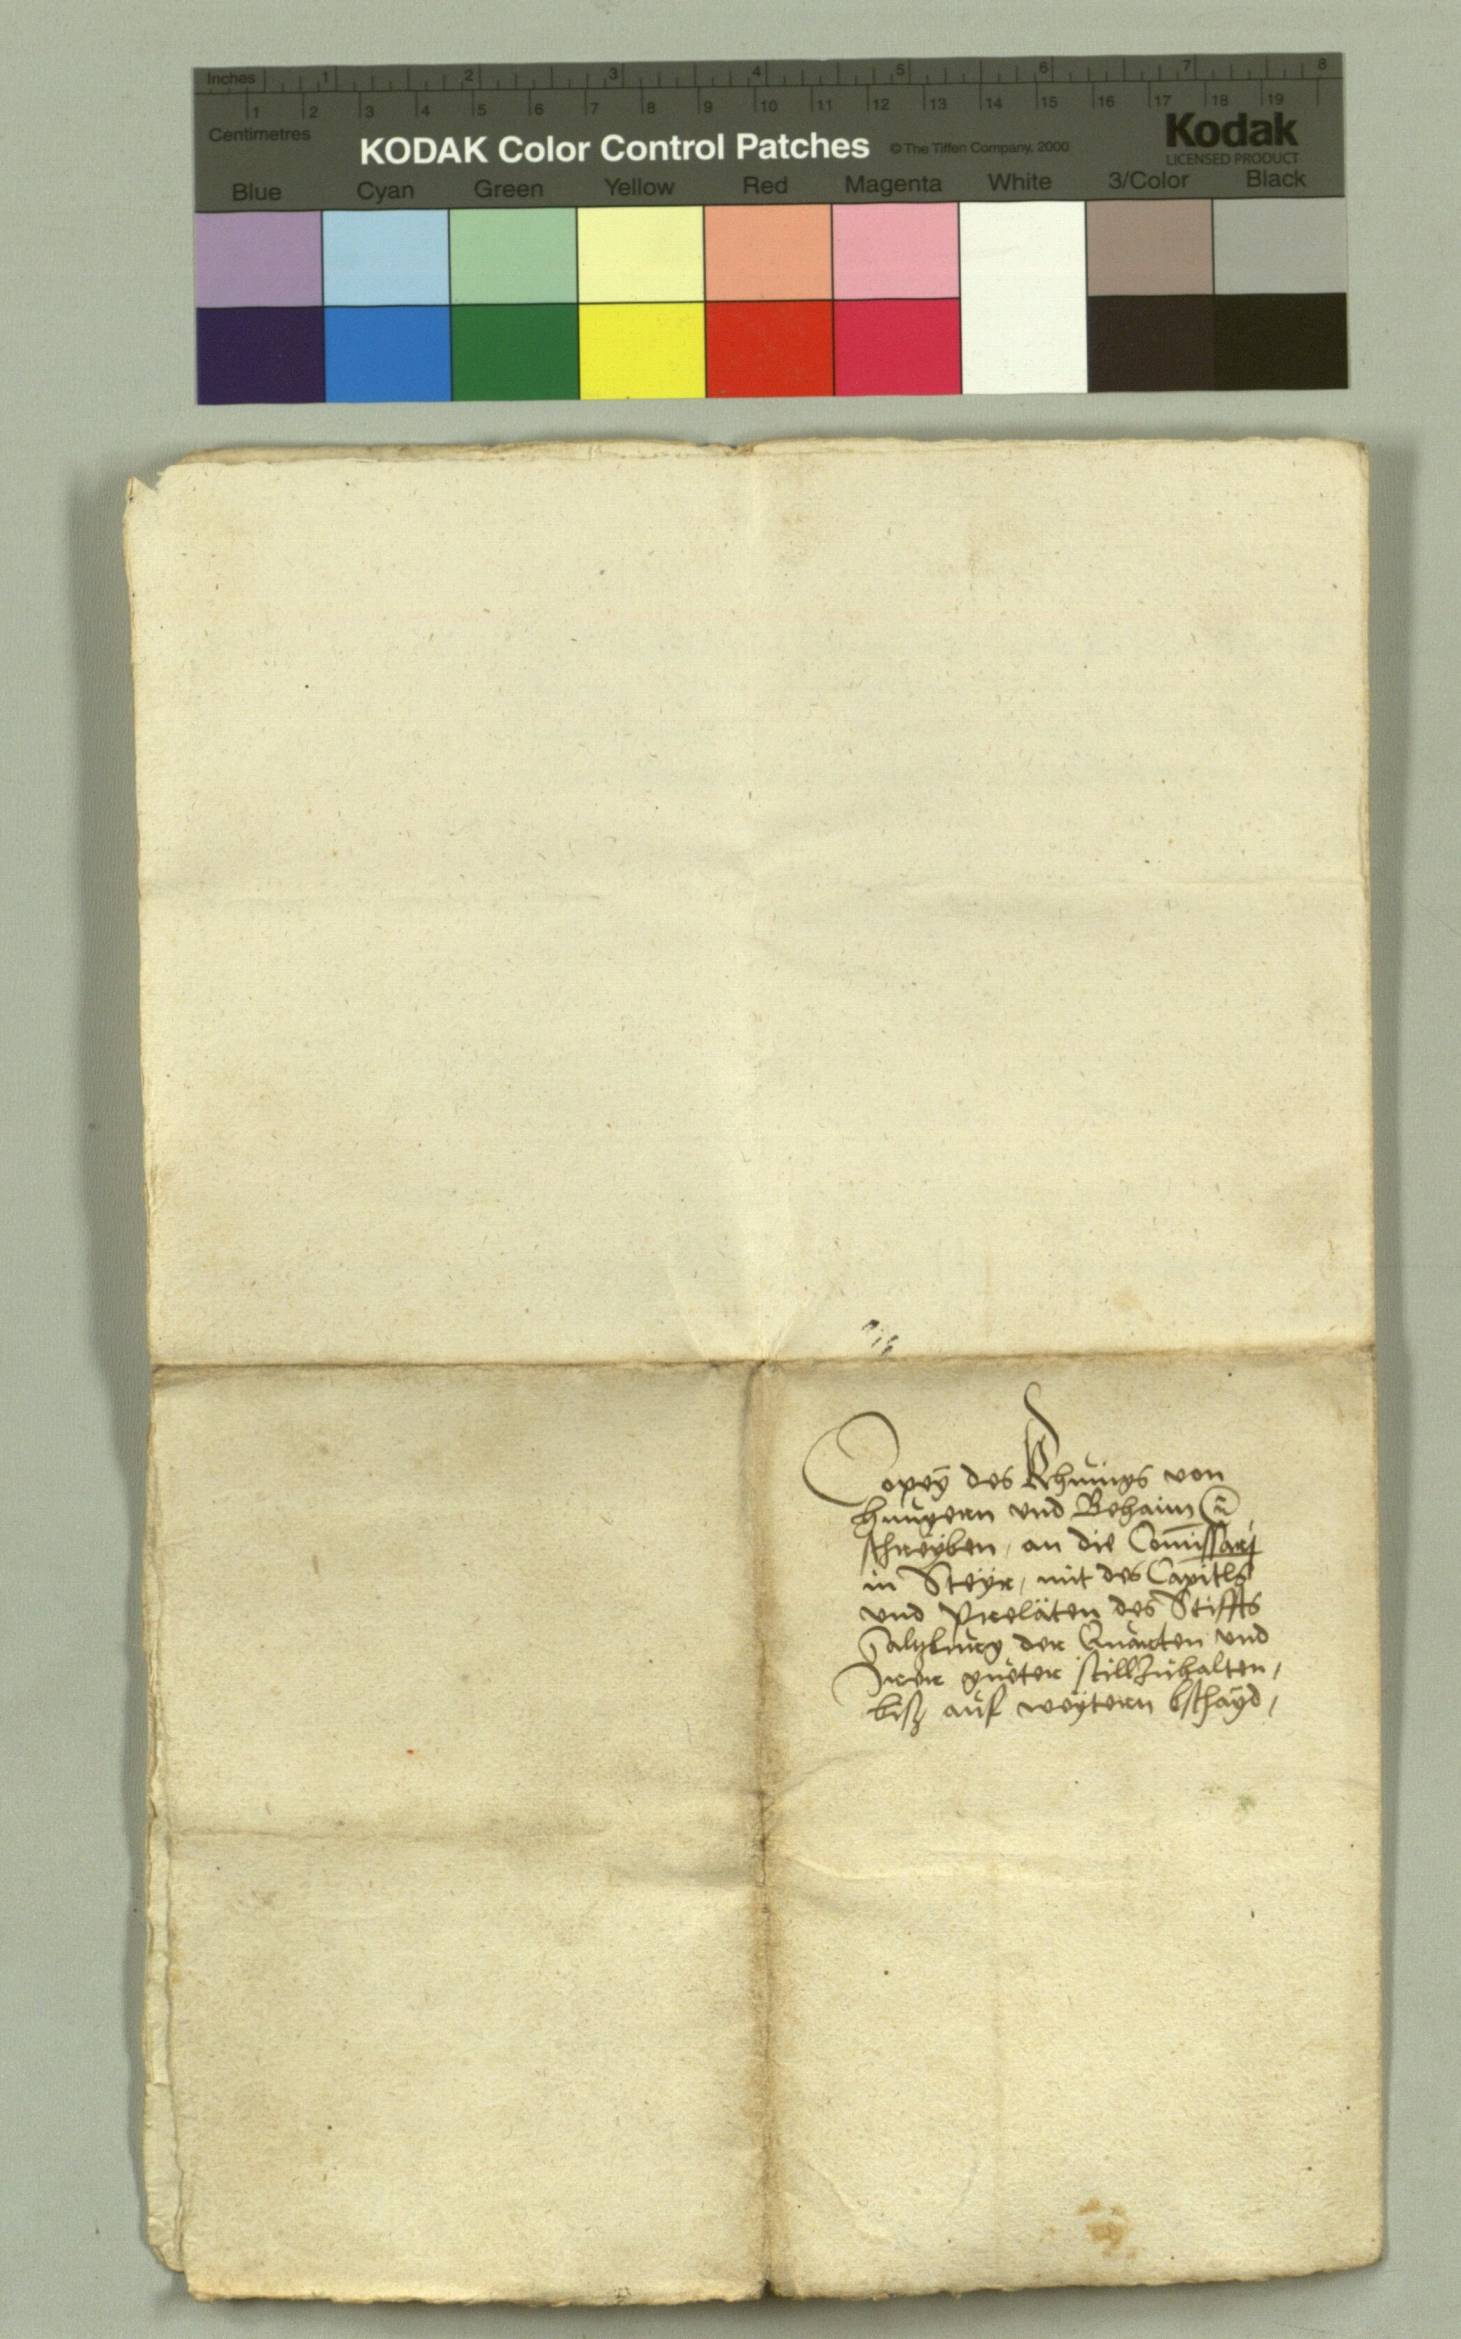 Inches 1 2 3 4 5 6 7 8
1 2 3 4 5 6 7 8 9 10 11 12 13 14 15 16 17 18 19
Centimetres
KODAK Color Control Patches © The Tiffen Company, 2000 Kodak
LICENSED PRODUCT
Blue Cyan Green Yellow Red Magenta White 3/Color Black
Copey des Khunigs von
hungern und Behaim
schreyben, an die Comissarj
in Steyr, mit des Capitls
und Preläten des Stiffts
Saltzburg der Quarten und
Irer gueter still zuhalten,
bisz auf weytern bschayd,